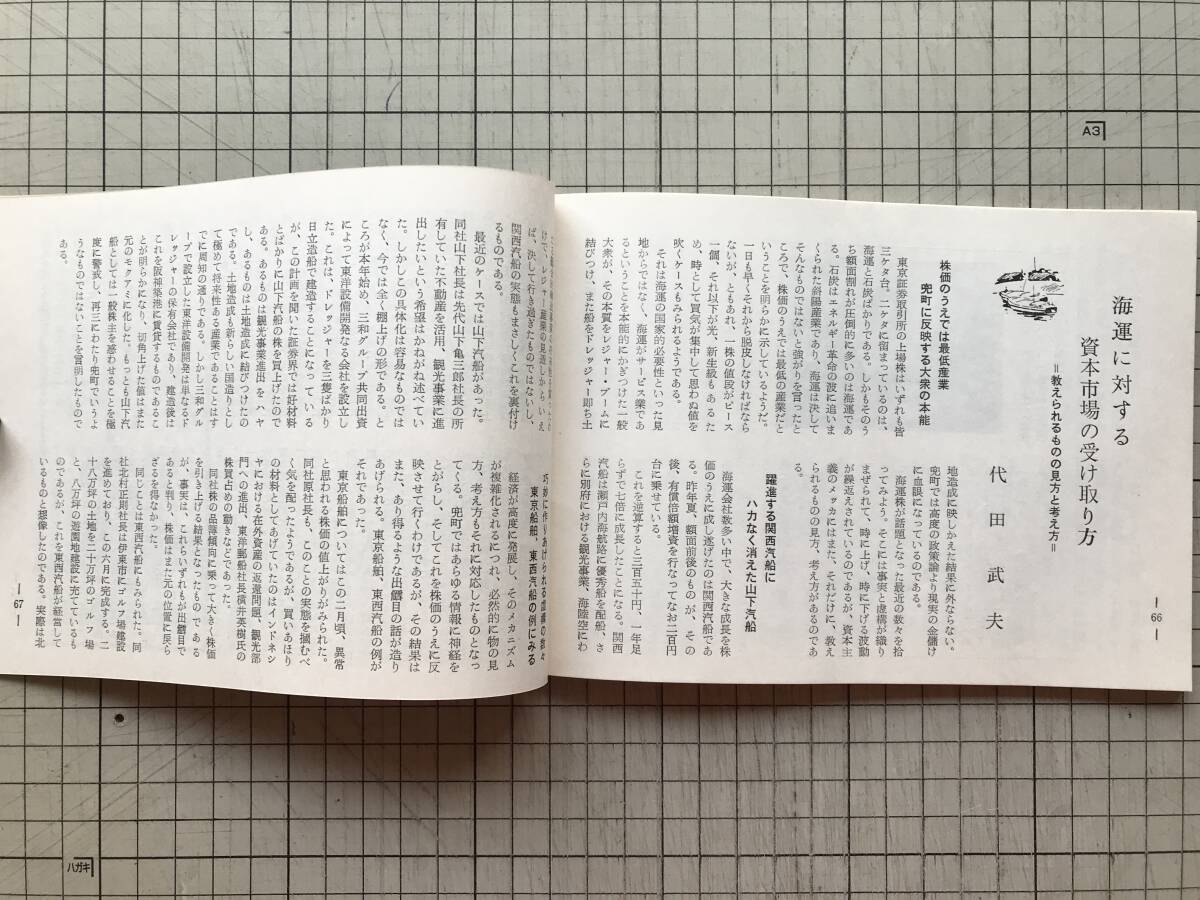 海運に対する
資本市場の受け取り方
＝教えられるものの見方と考え方＝
代田武夫
株価のうえでは最低産業
兜町に反映する大衆の本能
東京証券取引所の上場株はいずれも皆
三ケタ台。二ケタに留まっているのは、
海運と石炭ばかりである。しかもそのう
ち額面割れが圧倒的に多いのは海運であ
る。石炭はエネルギー革命の波に追いま
くられた斜陽産業であり、海運は決して
そんなものではないと強がりを言ったと
ころで、株価のうえでは最低の産業だと
いうことを明らかに示しているようだ。
一日も早くそれから脱皮しなければなら
ないが、ともあれ、一株の値段がピース
一個、それ以下が光、新生級も あ る た
め、時として買気が集中して思わぬ値を
吹くケースもみられるようである。
それは海運の国家的必要性といった見
地からではなく、海運がサービス業であ
るということを本能的にかぎつけた一般
大衆が、その本質をレジャー・ブームに
結びつけ、また船をドレッジャー即ち土
地造成に映しかえた結果に外ならない。
兜町では高度の政策論より現実の金儲け
に血眼になっているのである。
海運株が話題となった最近の数々を拾
ってみよう。そこには事実と虚構が織り
まぜられて、時に上げ、時に下げる波動
が繰返えされているのであるが、資本主
義のメッカにはまた、それだけに、教え
られるものの見方、考え方があるのであ
る。
躍進する関西汽船に
ハカなく消えた山下汽船
海運会社数多い中で、大きな成長を株
価のうえに成し遂げたのは関西汽船であ
る。昨年夏、額面前後のものが、そ の
後、有償倍額増資を行なってなお二百円
台に乗せている。
これを逆算すると三百五十円、一年足
らずで七倍に成長したことになる。関西
汽船は瀬戸内海航路に優秀船を配船、さ
らに別府における観光事業、海陸空にわ
―66―
けで、レジャー産業の見通しからいえ
ば、決して行き過ぎたものではないし、
関西汽船の実態もまさしくこれを裏付け
るものである。
最近のケースでは山下汽船があった。
同社山下社長は先代山下亀三郎社長の所
有していた不動産を活用、観光事業に進
出したいという希望はかがね述べてい
た。しかしこの具体化は容易なものでは
なく、今では全く棚上げの形である。と
ころが本年始め、三和グループ共同出資
によって東洋設備開発なる会社を設立し
た。これは、ドレッジャーを三隻ばかり
日立造船で建造することになって い る
が、この計画を聞いた証券界では好材料
とばかりに山下汽船の株を買上げたので
ある。あるものは観光事業進出を ハ ヤ
し、あるものは土地造成に結びつけたの
である。土地造成も新らしい国造りとし
て極めて将来性ある産業であることはす
でに周知の通りである。しかし三和グル
ープで設立した東洋設備開発は単なるド
レッジャーの保有会社であり、建造後は
これを阪神築港に賃貸するものであるこ
とが明らかになり、切角上げた値はまた
元のモクアミに化した。もっとも山下汽
船としては一般株主を惑わせることを極
度に警戒し、再三にわたり兜町でいうよ
うなものではないことを言明したもので
ある。
巧妙に作りあげられる虚構の数々
東京船舶、東西汽船の例にみる
経済が高度に発展し、そのメカニズム
が複雑化されるにつれ、必然的に物の見
方、考え方もそれに対応したものとなっ
てくる。兜町ではあらゆる情報に神経を
とがらし、そしてこれを株価のうえに反
映させて行くわけであるが、その結果は
また、あり得るような出鱈目の話が造り
あげられる。東京船舶、東西汽船の例が
それであった。
東京船舶についてはこの二月頃、異常
と思われる株価の値上がりがみられた。
同社原社長も、このことの実態を摑むべ
く気を配ったようであるが、買いあほり
の材料としてあげていたのはインドネシ
ヤにおける在外資産の返還問題、観光部
門への進出、東洋郵船社長横井英樹氏の
株買占めの動きなどであった。
同社株の品薄傾向に乗って大きく株価
を引き上げる結果となったもの で ある
が、事実は、これらいずれもが出鱈目で
あると判り、株価はまた元の位置に戻ら
ざるを得なかった。
同じことは東西汽船にもみられた。同
社北村正則社長は伊東市にゴルフ場建設
を進めており、この六月に完成する。二
十八万坪の土地を二十万坪のゴルフ 場
と、八万坪の遊園地建設に充てているも
のであるが、これを東西汽船が経営して
いるものと想像したのである。実際は北
―67―
A3
ハガキ